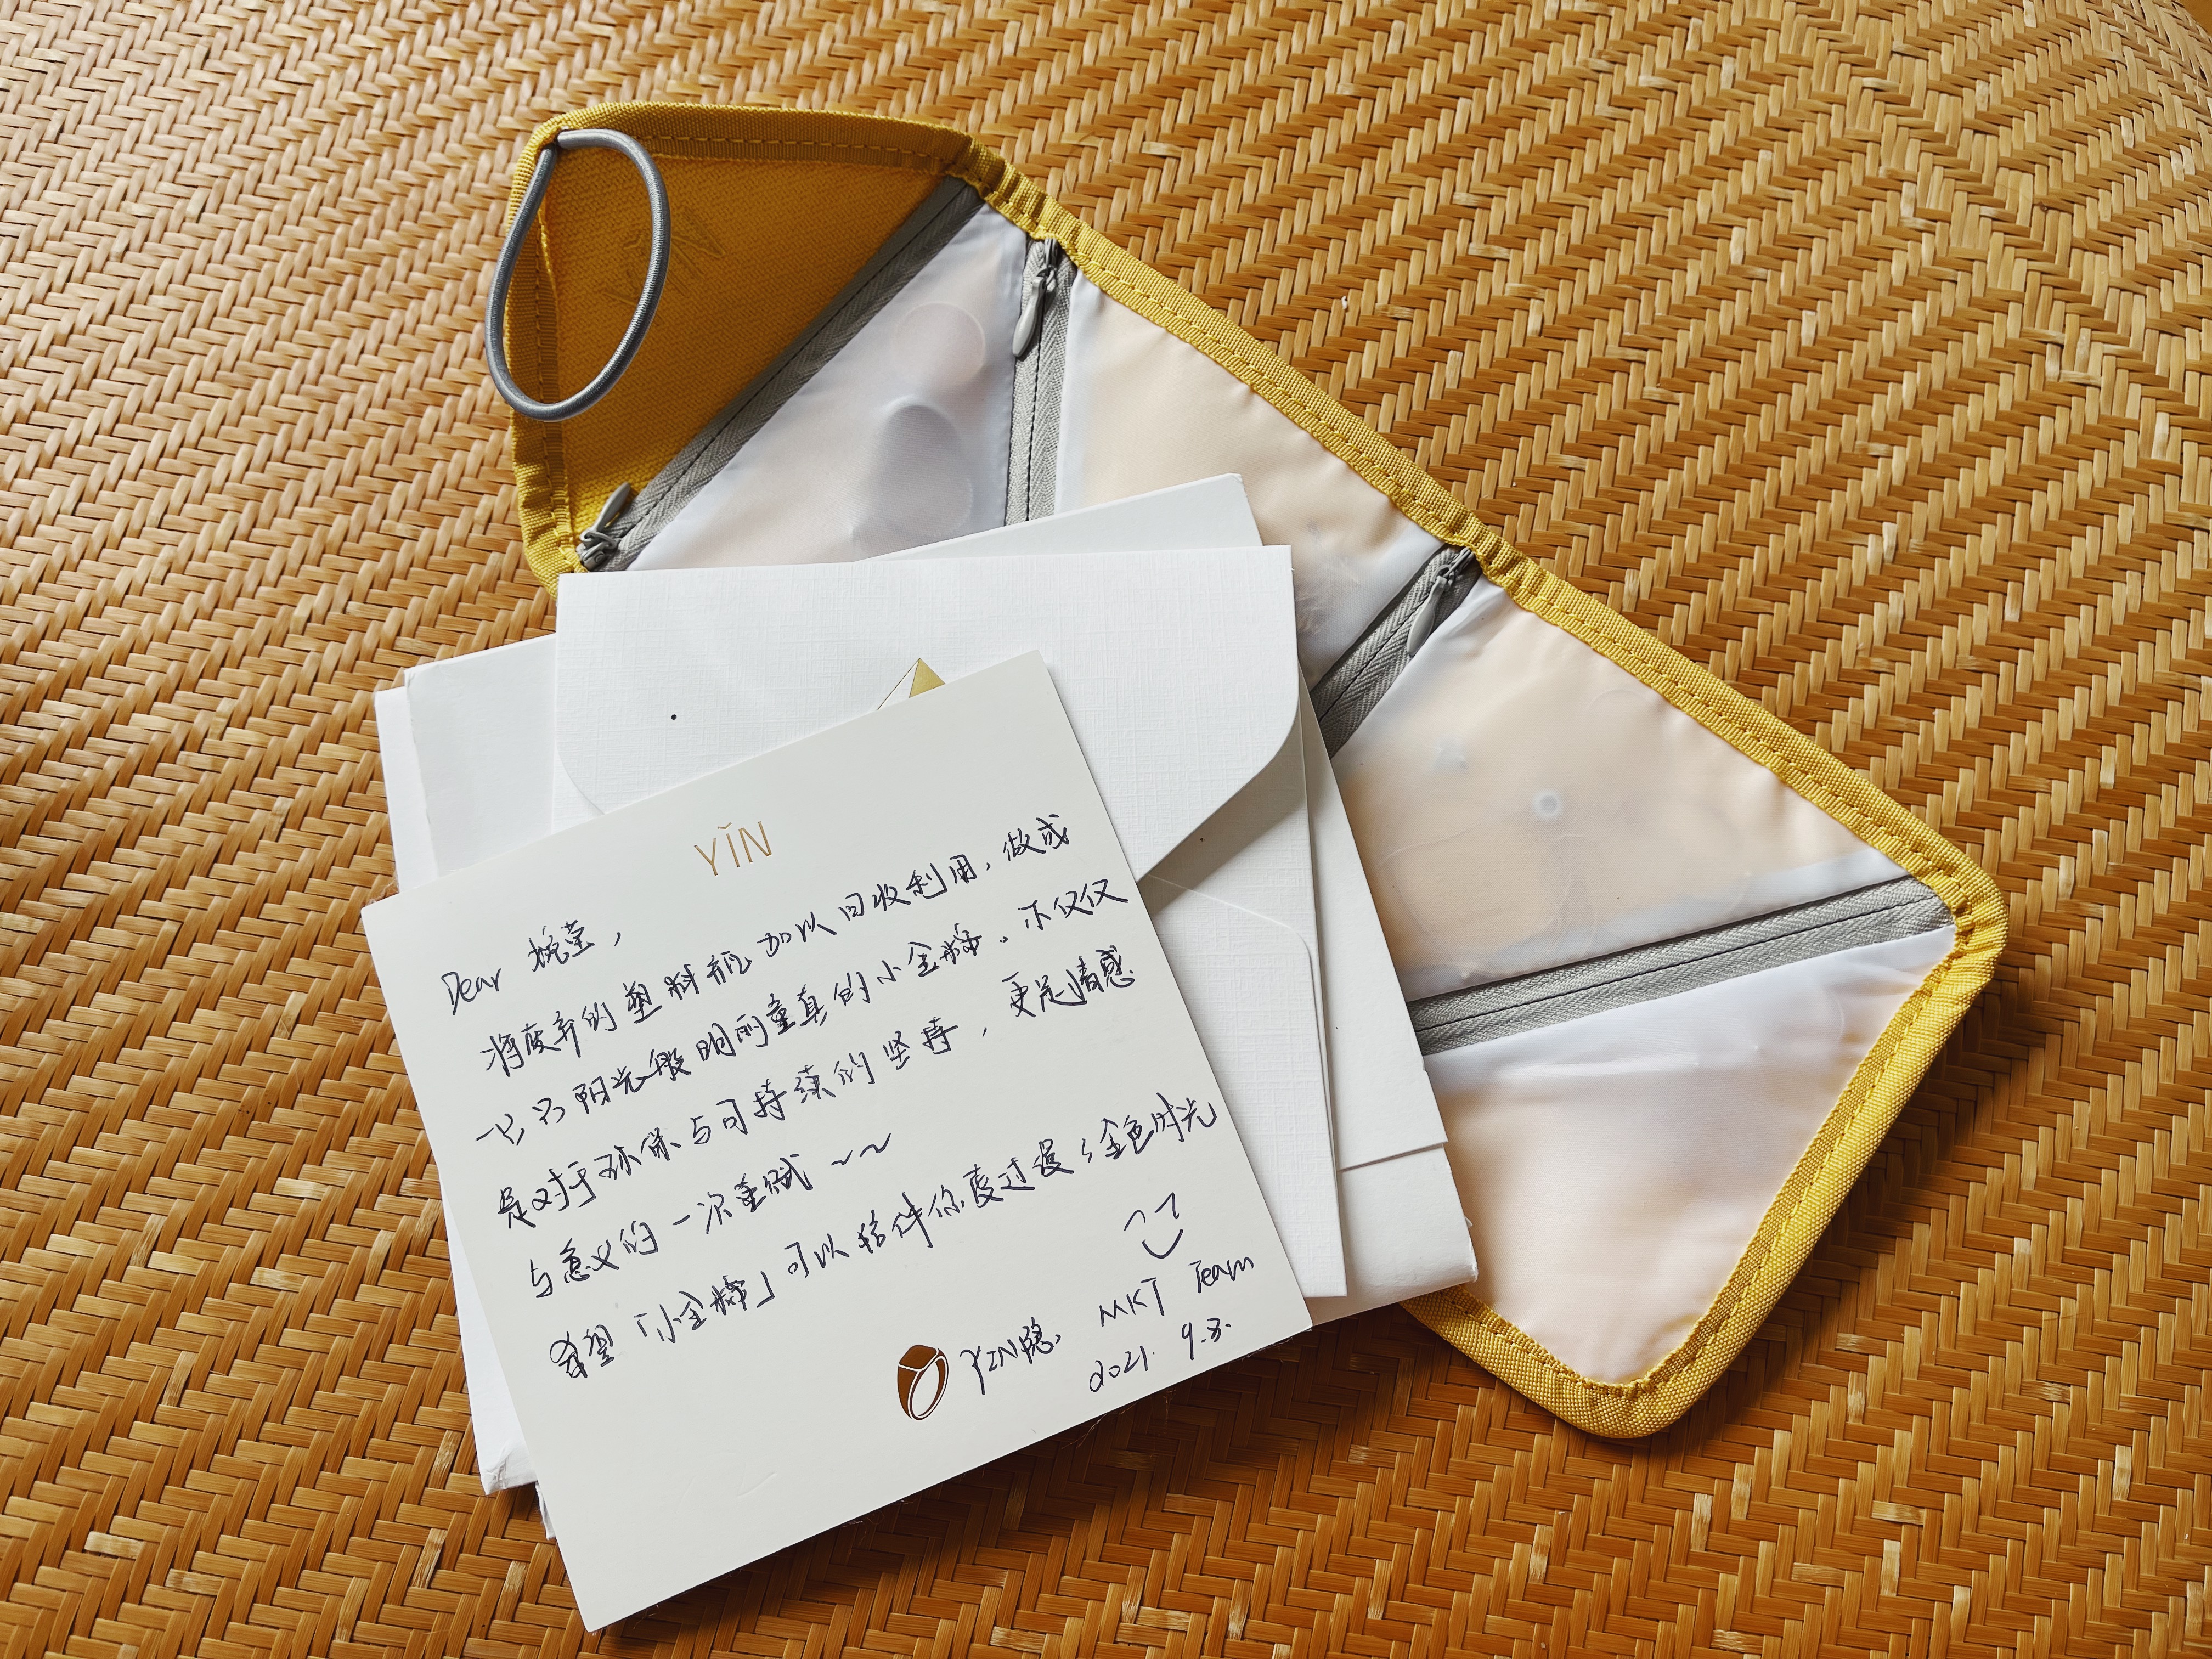 YǏN
Dear 婉莹，
将废弃的塑料瓶加以回收利用，做成
一只只阳光般明丽童真的小金粽。不仅仅
是对于环保与可持续的坚持，更是情感
与意义的一次重赋~~
希望「小金粽」可以陪伴你度过漫々金色时光
YIN隐 MKT Team
2021. 9.8.
YIN